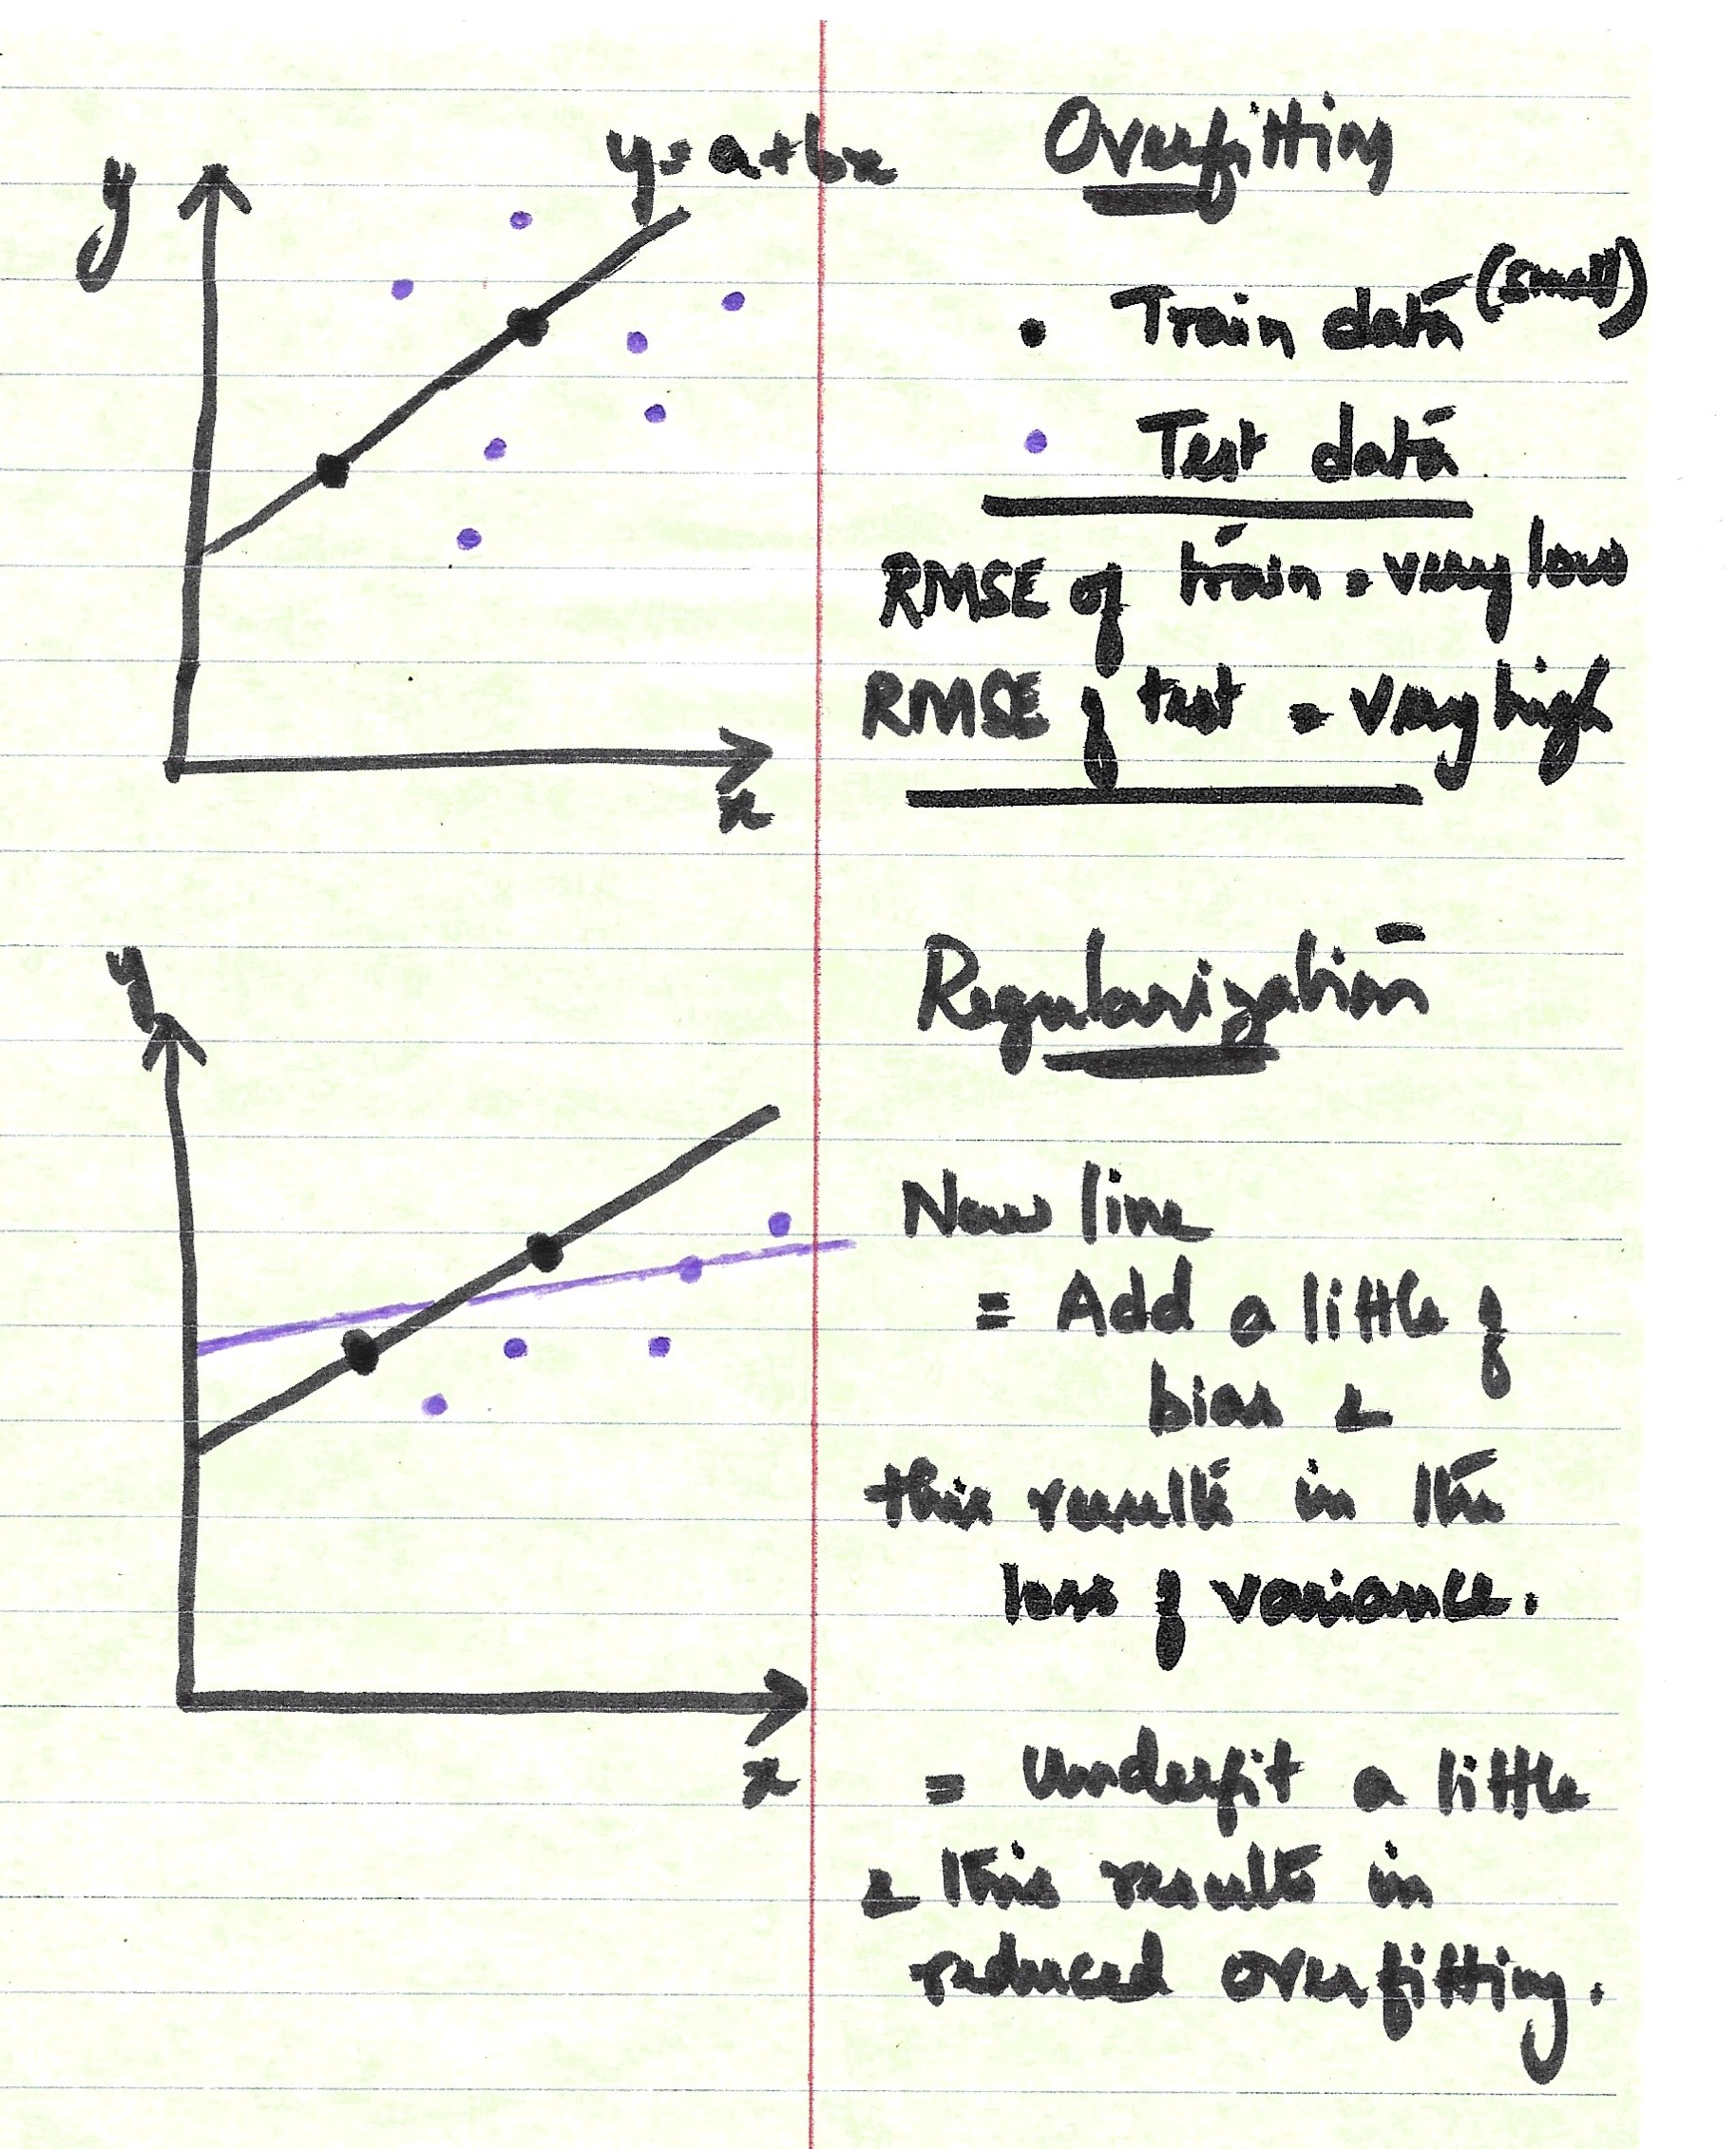 y
y = a + bx
x
Overfitting
Train data (small)
Test data
RMSE of train = very low
RMSE of test = very high
y
x
Regularization
New line
= Add a little of
bias &
this results in the
loss of variance.
= Underfit a little
& this results in
reduced overfitting.